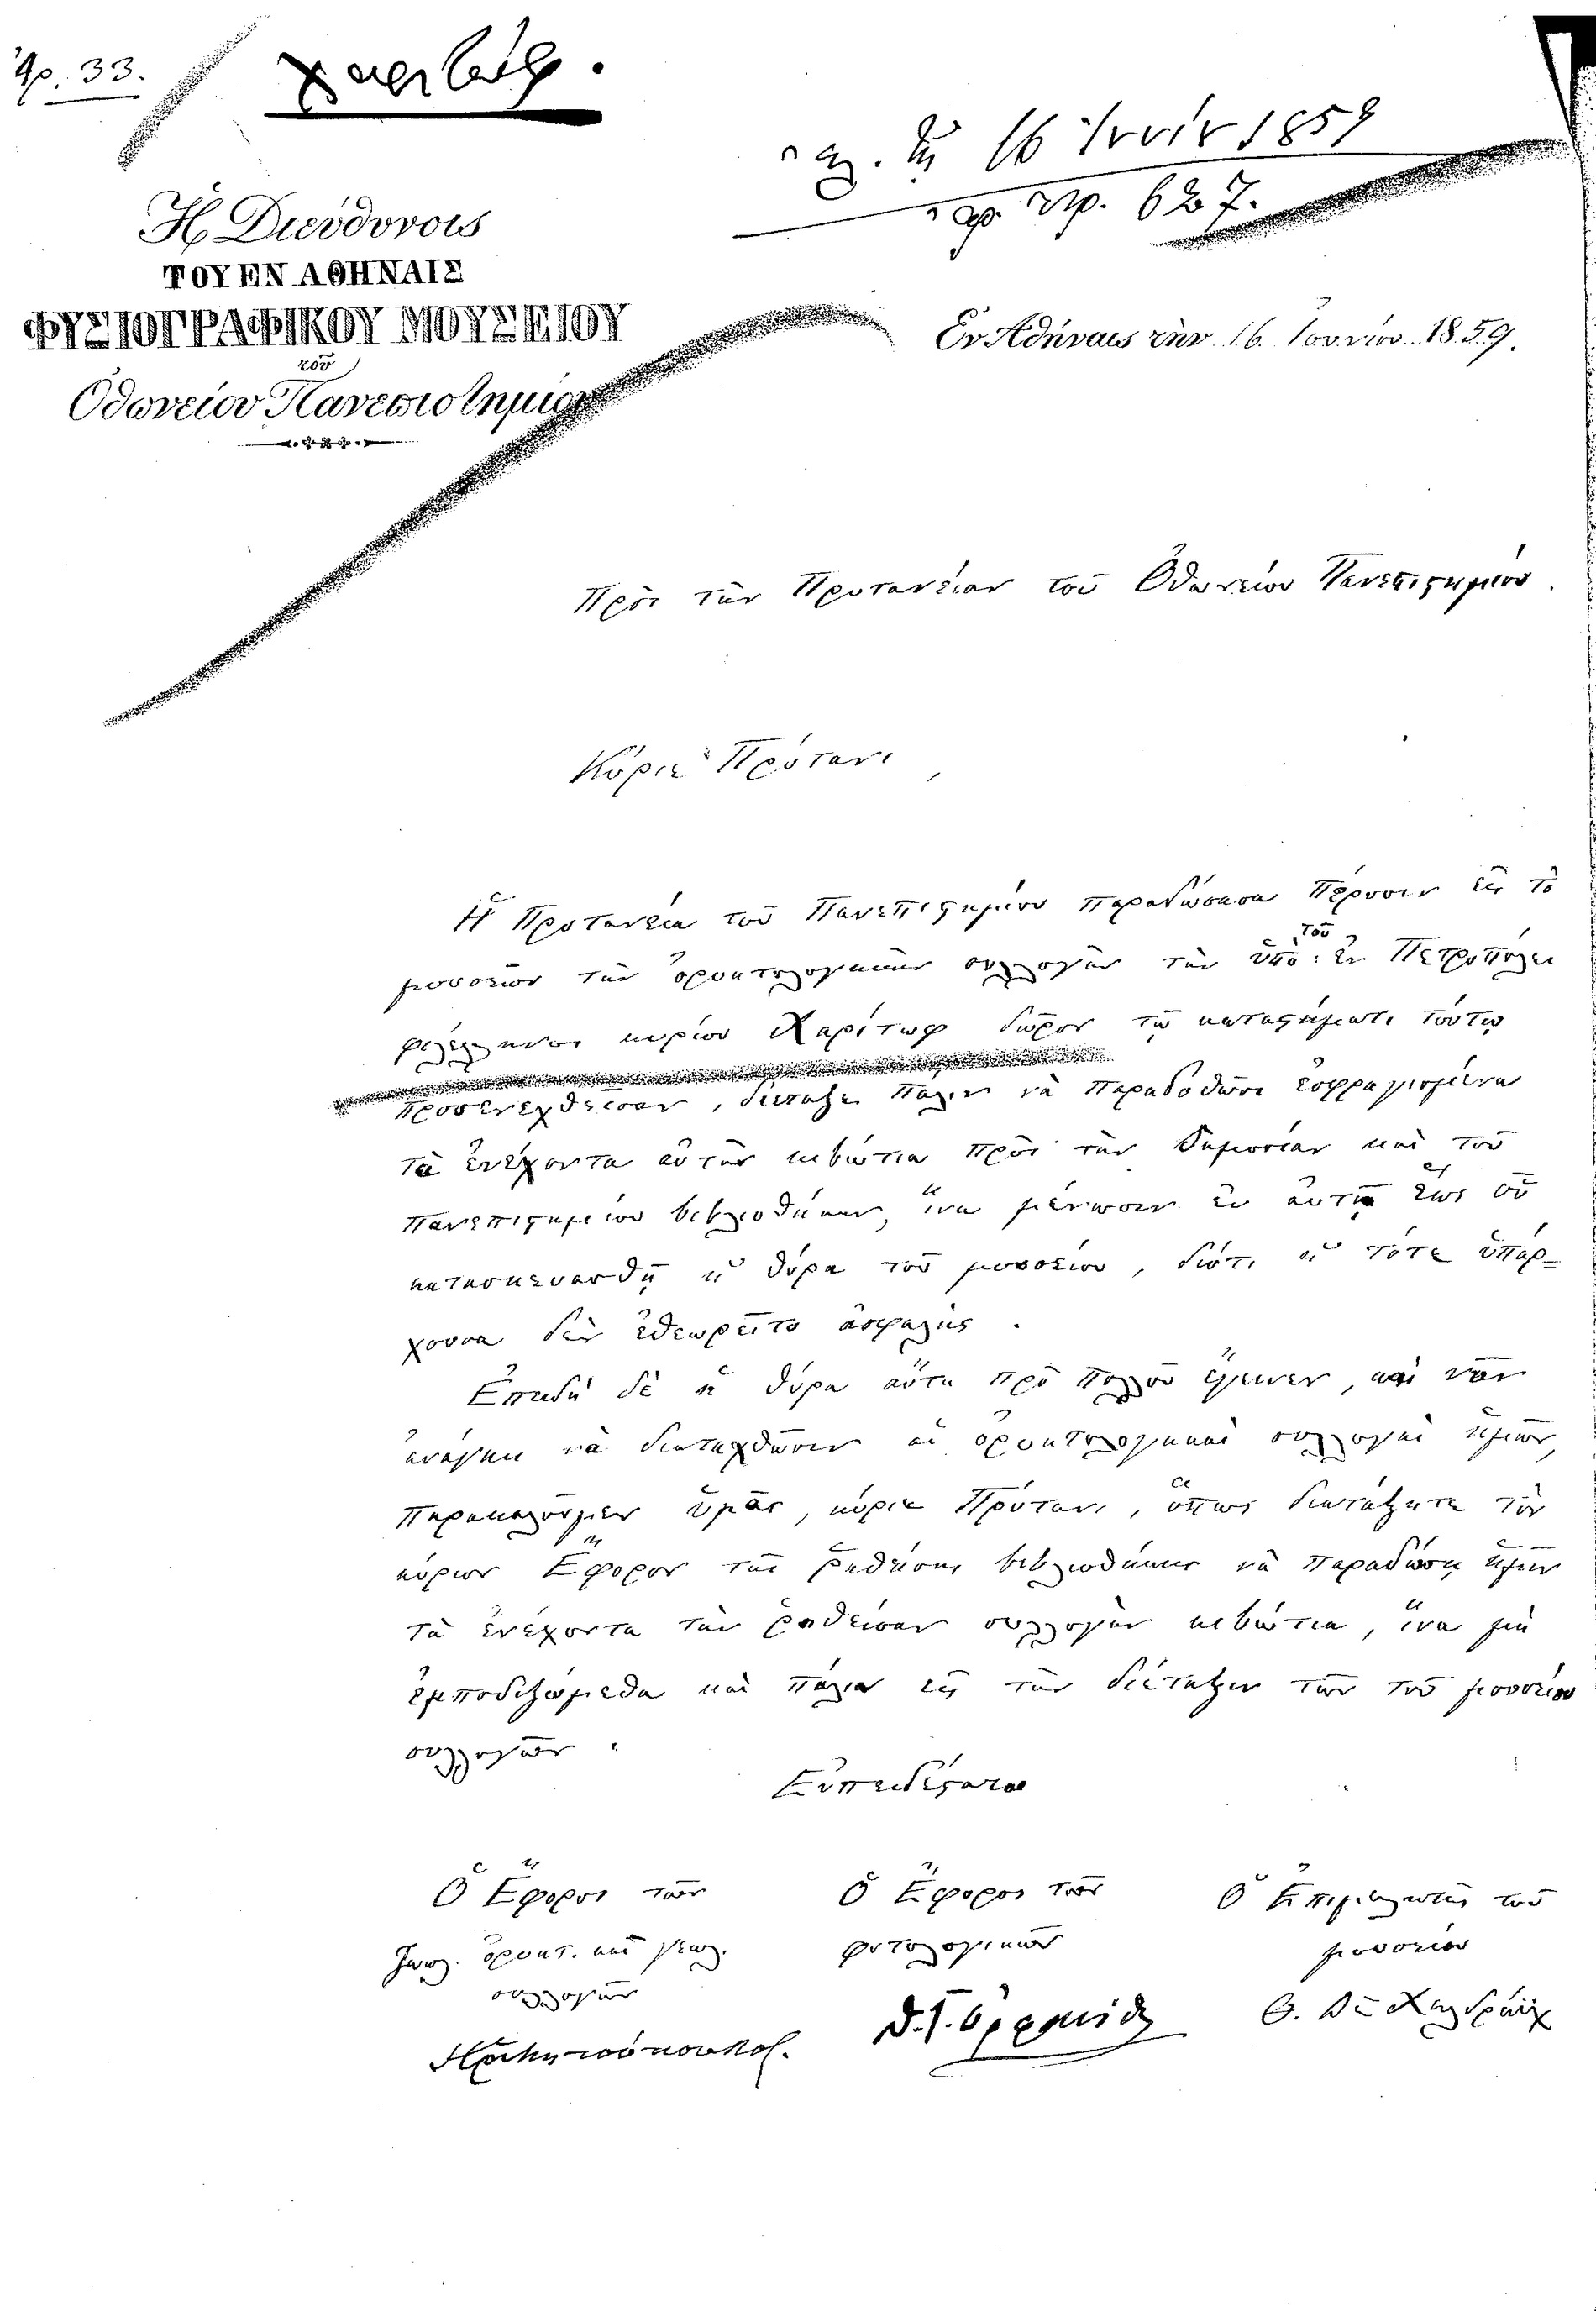 Ἀρ. 33.
ἐλ. τῇ 16 Ἰουνίου 1859
ἀρ. πρ. 627.
Ἡ Διεύθυνσις
ΤΟΥ ΕΝ ΑΘΗΝΑΙΣ
ΦΥΣΙΟΓΡΑΦΙΚΟΥ ΜΟΥΣΕΙΟΥ
τοῦ
Ὀθωνείου Πανεπιστημίου
Ἐν Ἀθήναις τὴν 16 Ἰουνίου 1859.
Πρὸς τὴν Πρυτανείαν τοῦ Ὀθωνείου Πανεπιστημίου.
Κύριε Πρύτανι,
Ἡ Πρυτανεία τοῦ Πανεπιστημίου παραδώσασα πέρυσιν εἰς τὸ
μουσεῖον τὴν ὀρυκτολογικὴν συλλογὴν τὴν ὑπὸ τοῦ ἐν Πετρουπόλει
φιλέλληνος κυρίου Χαρίτωφ δῶρον τῷ καταστήματι τούτῳ
προσενεχθεῖσαν, διέταξε πάλιν νὰ παραδοθῶσι ἐσφραγισμένα
τὰ ἐνέχοντα αὐτὴν κιβώτια πρὸς τὴν δημοσίαν καὶ τοῦ
Πανεπιστημίου βιβλιοθήκην, ἵνα μένωσιν ἐν αὐτῇ ἕως οὗ
κατασκευασθῇ ἡ θύρα τοῦ μουσείου, διότι ἡ τότε ὑπάρ-
χουσα δὲν ἐθεωρεῖτο ἀσφαλής.
Ἐπειδὴ δὲ ἡ θύρα αὕτη πρὸ πολλοῦ ἔγεινεν, καὶ νῦν
ἀνάγκη νὰ διαταχθῶσιν αἱ ὀρυκτολογικαὶ συλλογαὶ ἡμῶν,
παρακαλοῦμεν ὑμᾶς, κύριε Πρύτανι, ὅπως διατάξητε τὸν
κύριον Ἔφορον τῆς ῥηθείσης βιβλιοθήκης νὰ παραδώσῃ ἡμῖν
τὰ ἐνέχοντα τὴν ῥηθεῖσαν συλλογὴν κιβώτια, ἵνα μὴ
ἐμποδιζώμεθα καὶ πάλιν εἰς τὴν διάταξιν τῶν τοῦ μουσείου
συλλογῶν.
Εὐπειθέστατοι
Ὁ Ἔφορος τῶν
ζωολ. ὀρυκτ. καὶ γεωλ.
συλλογῶν
Ἡρ. Μητσόπουλος.
Ὁ Ἔφορος τῶν
φυτολογικῶν
Θ. Γ. Ὀρφανίδης
Ὁ Ἐπιμελητὴς τοῦ
μουσείου
Θ. Δὲ Χελδράιχ